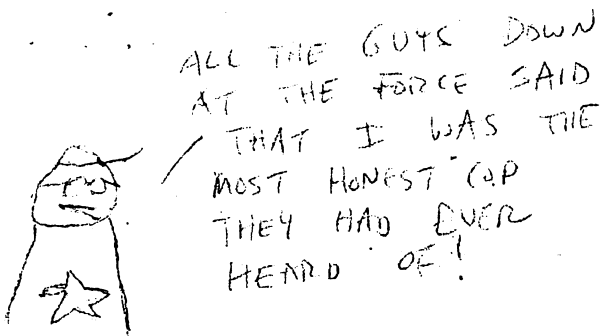 ALL THE GUYS DOWN
AT THE FORCE SAID
THAT I WAS THE
MOST HONEST COP
THEY HAD EVER
HEARD OF!